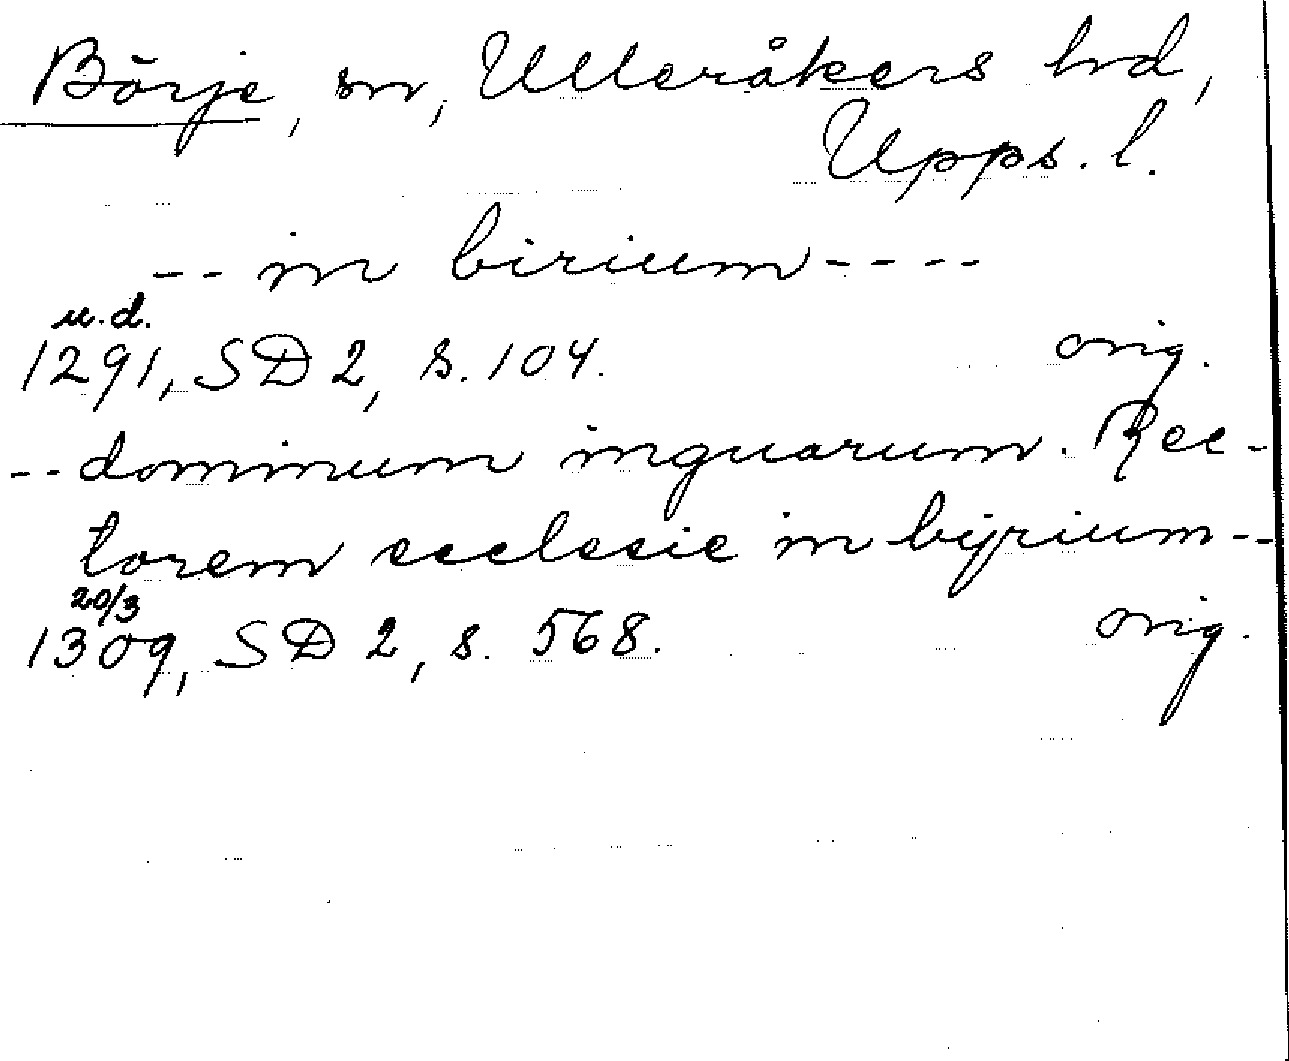 Börje, sn, Ulleråkers hrd,
Upps. l.
-- in birium ----
u.d.
1291, SD 2, s. 104. orig.
-- dominum inguarum. Rec-
torem ecclesie in byrium --
20/3
1309, SD 2, s. 568. orig.